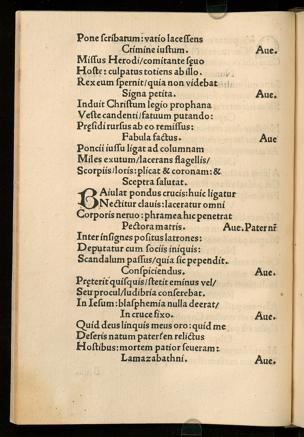 Pone scribarum: vario lacessens
Crimine iustum. Aue.
Missus Herodi/comitante sęuo
Hoste: culpatus totiens ab illo.
Rex eum spernit/quia non videbat
Signa petita. Aue.
Induit Christum legio prophana
Veste candenti/fatuum putando:
Pręsidi rursus ab eo remissus:
Fabula factus. Aue
Poncii iussu ligat ad columnam
Miles exutum/lacerans flagellis/
Scorpiis/loris: plicat & coronam: &
Sceptra salutat.
BAiulat pondus crucis: huic ligatur
Nectitur clauis: laceratur omni
Corporis neruo: phramea hic penetrat
Pectora matris. Aue. Pater nr̄
Inter insignes positus latrones:
Deputatur cum sociis iniquis:
Scandalum passus/quia sic pependit.
Conspiciendus. Aue.
Pręterit quisquis/stetit eminus vel/
Seu procul/ludibria conserebat.
In Iesum: blasphemia nulla deerat/
In cruce fixo. Aue.
Quid deus linquis meus oro: quid me
Deseris natum pater/en relictus
Hostibus: mortem patior seueram:
Lamazabathni. Aue.